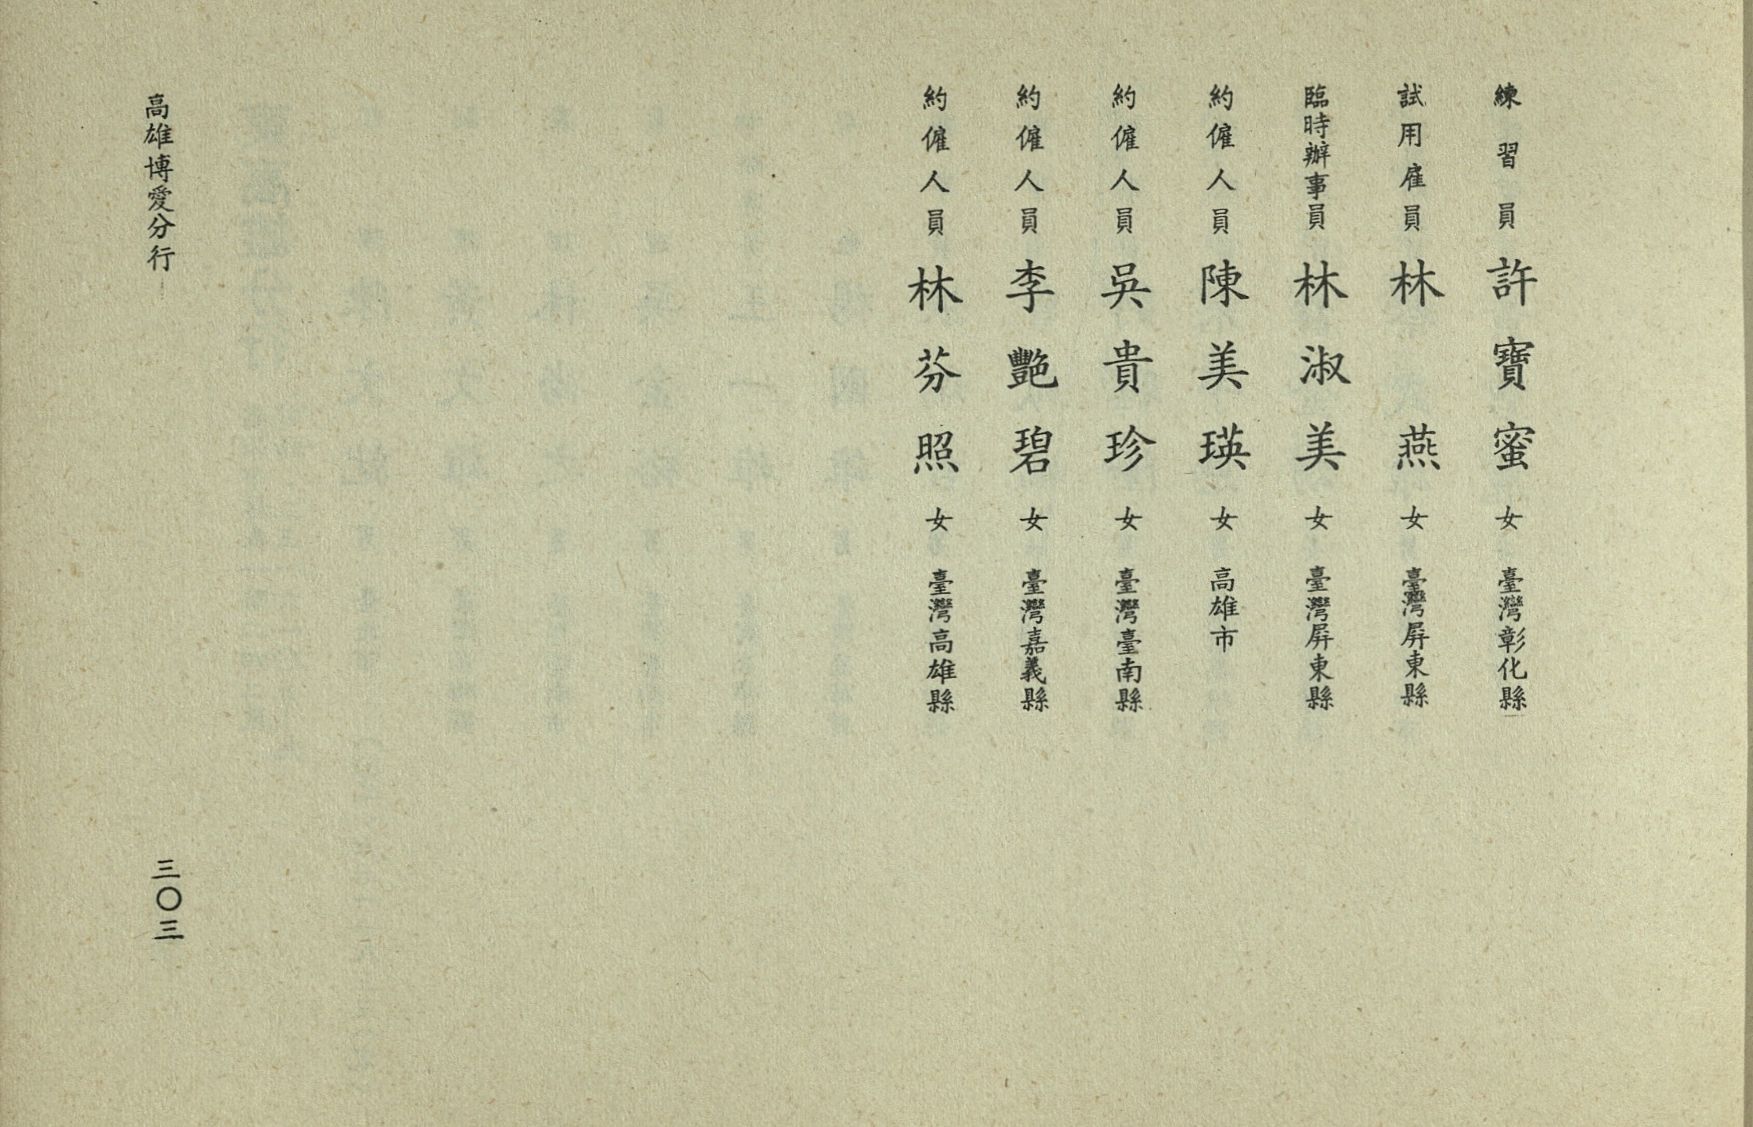 練習員 許寶蜜 女 臺灣彰化縣
試用雇員 林燕 女 臺灣屏東縣
臨時辦事員 林淑美 女 臺灣屏東縣
約僱人員 陳美瑛 女 高雄市
約僱人員 吳貴珍 女 臺灣臺南縣
約僱人員 李艷碧 女 臺灣嘉義縣
約僱人員 林芬照 女 臺灣高雄縣
高雄博愛分行
三〇三